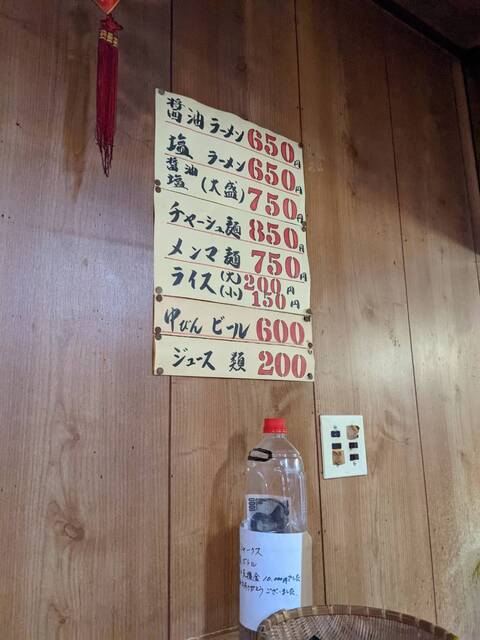 醤油ラーメン 650円
塩 ラーメン 650円
醤油
塩 (大盛) 750円
チャーシュ麺 850円
メンマ麺 750円
ライス (大) 200円
(小) 150円
中びん ビール 600
ジュース類 200
1000
ボトル
10,000円でした
ありがとうございました